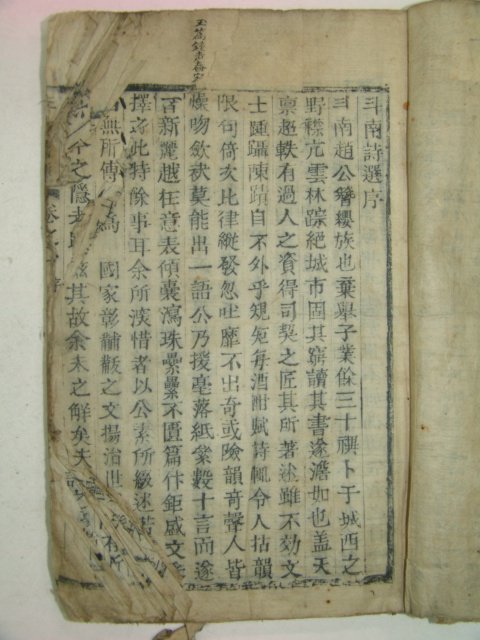 斗南詩選序
斗南趙公簪纓族也棄擧子業餘三十禩卜于城西之
野襟亢雲林踪絶城市固其窮讀其書遂澹如也盖天
禀超軼有過人之資得司契之匠其所著述雖不効文
士踵躡陳蹟自不外乎規矩每酒酣賦詩輒令人拈韻
限句倚亥比律縱發忽吐靡不出奇或險韻奇聲人皆
燥吻斂袂莫能出一語公乃援毫落紙絫數十言而遂
百新麗越在意表傾囊瀉珠纍纍不匱篇什鉅盛文
擇之此特餘事耳余所深惜者以公素所畜
無所傳 爲 國家彰黼黻之文揚治世
今之隱 其故余未之解矣夫